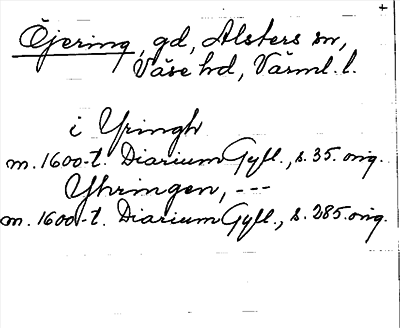 Öjering, gd, Alsters sn,
Väse hd, Värml. l.
i Yringh
m. 1600-t. Diarium Gyll., s. 35. orig.
Yhringen, ---
m. 1600-t. Diarium Gyll., s. 285. orig.